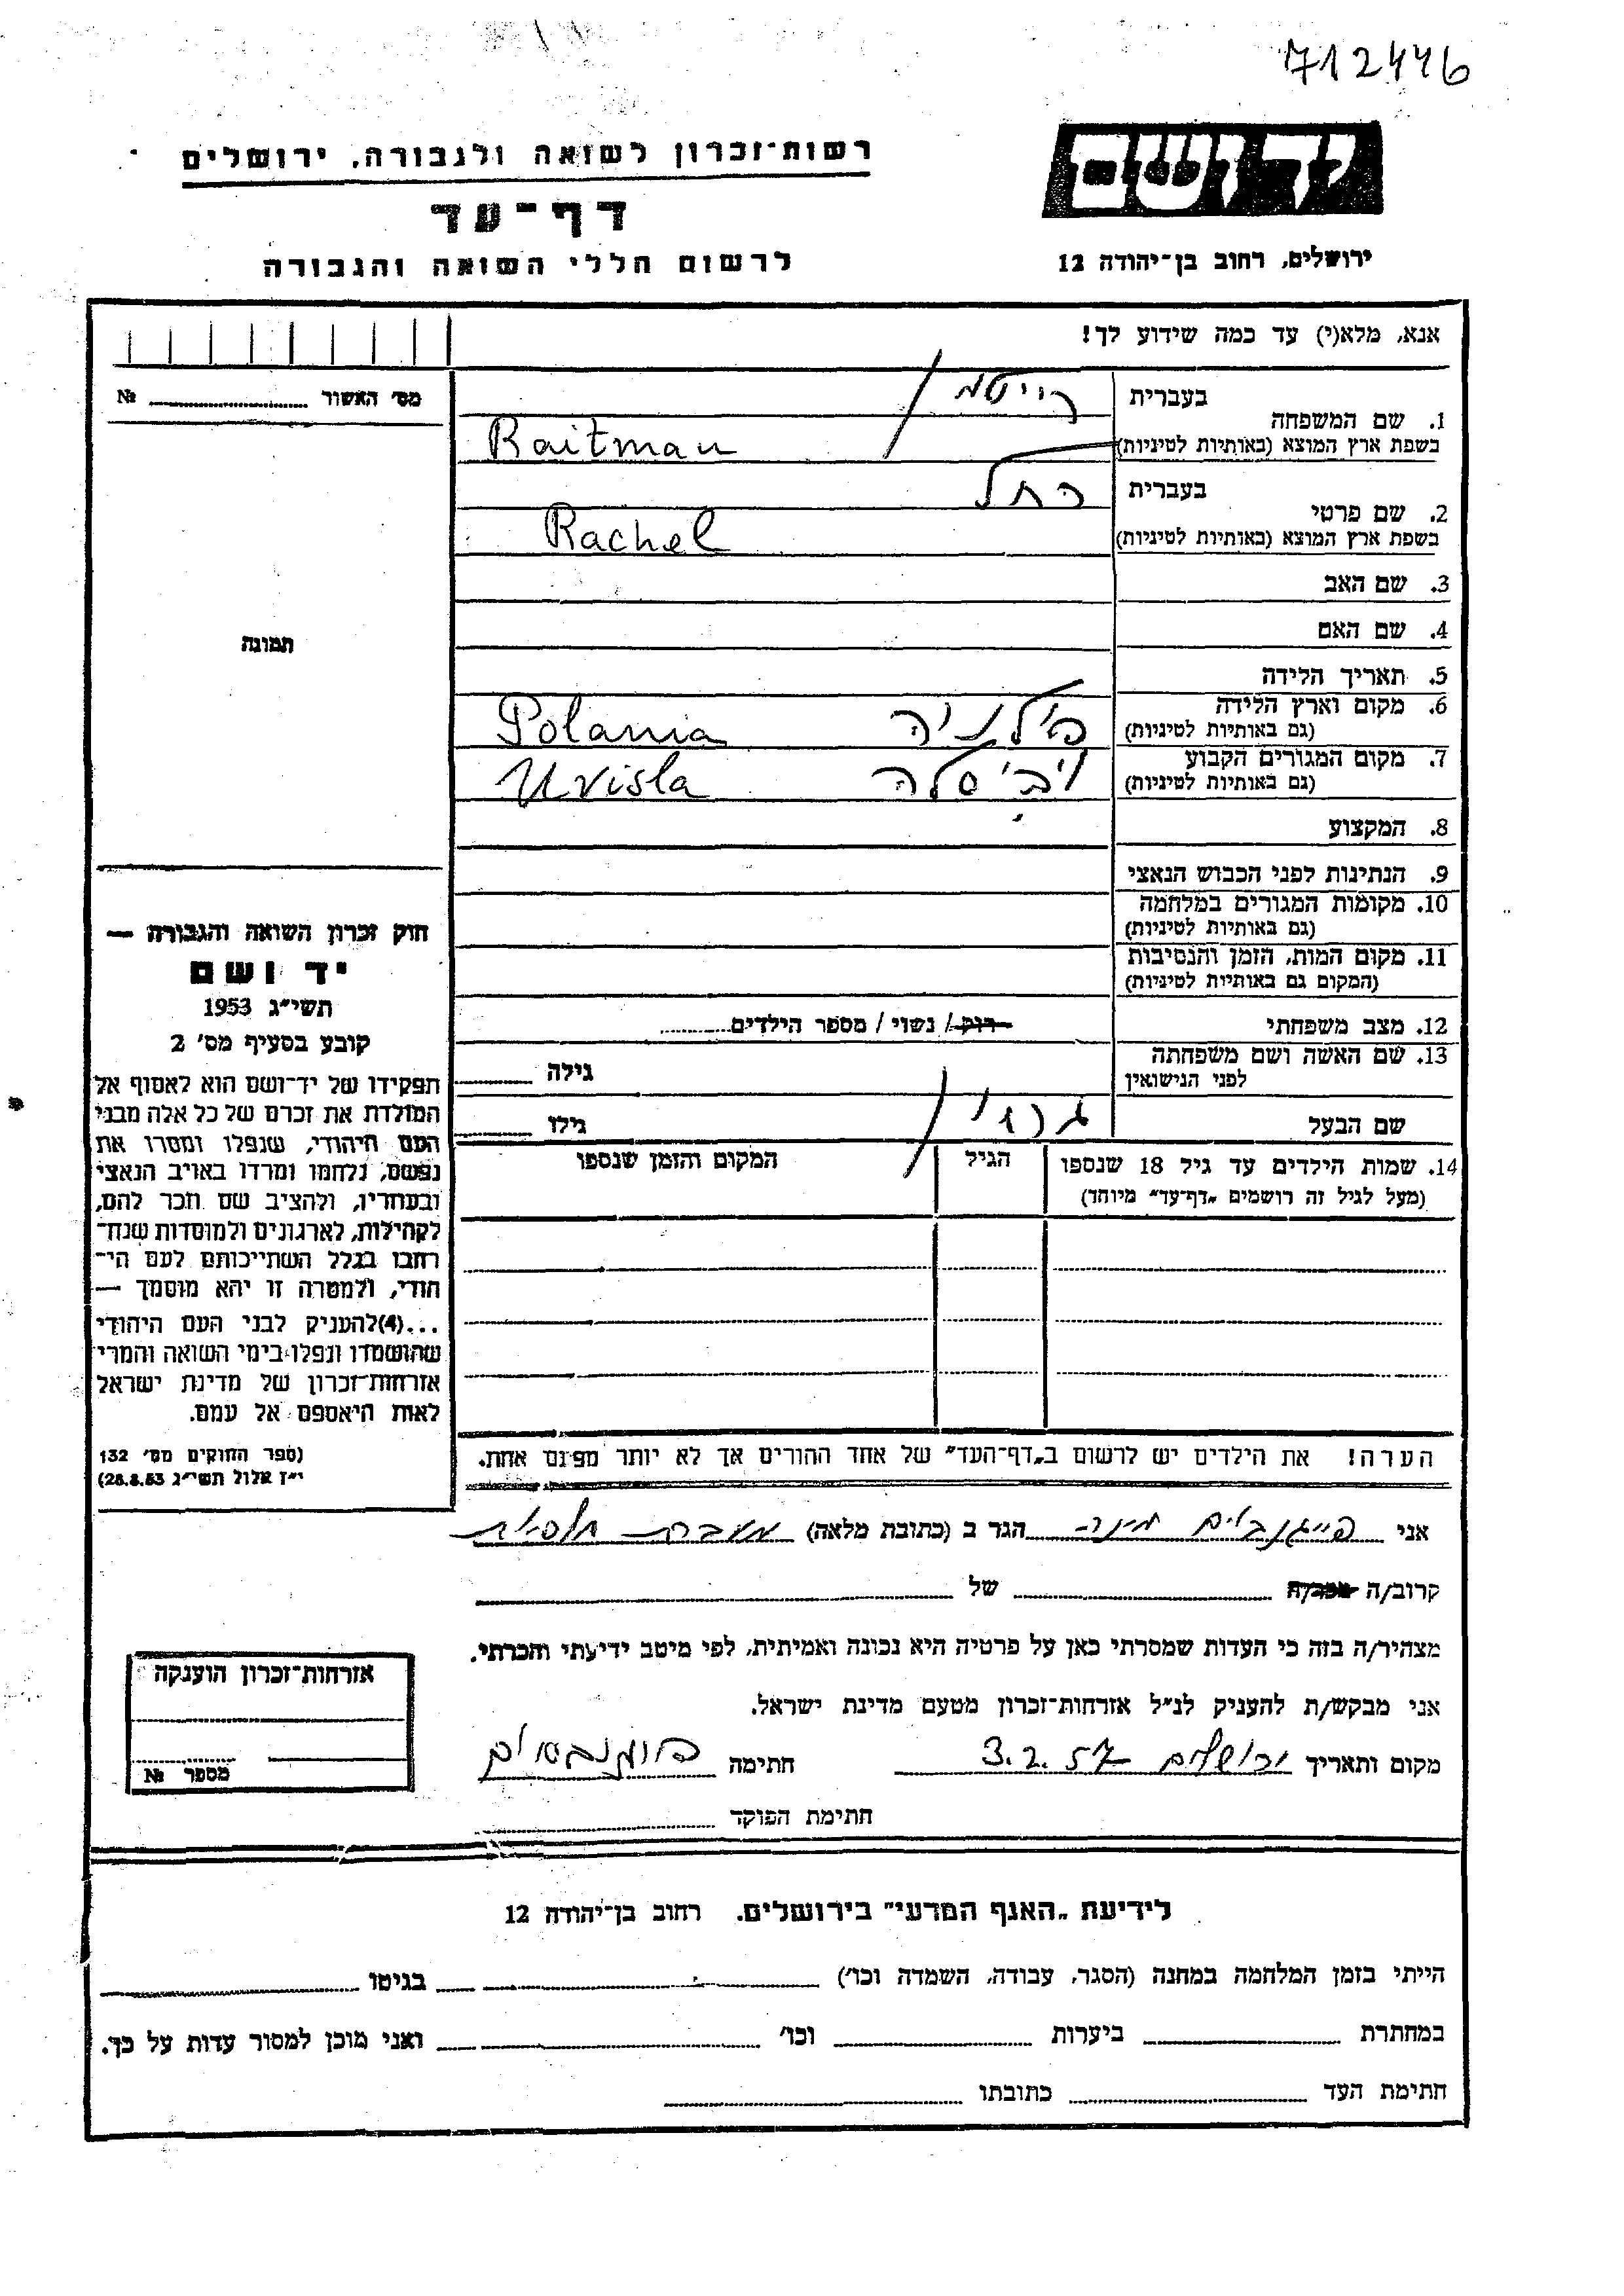 712446
יד ושם
רשות־זכרון לשואה ולגבורה, ירושלים
דף־עד
ירושלים, רחוב בן־יהודה 12
לרשום חללי השואה והגבורה
אנא, מלא(י) עד כמה שידוע לך!
מס׳ האשור № 
1. שם המשפחה
בעברית רייטמן
בשפת ארץ המוצא (באותיות לטיניות) Raitman
2. שם פרטי
בעברית רחל
בשפת ארץ המוצא (באותיות לטיניות) Rachel
3. שם האב
4. שם האם
5. תאריך הלידה
6. מקום וארץ הלידה
(גם באותיות לטיניות) פולניה Polania
7. מקום המגורים הקבוע
(גם באותיות לטיניות) Uvisla
8. המקצוע
9. הנתינות לפני הכבוש הנאצי
10. מקומות המגורים במלחמה
(גם באותיות לטיניות)
11. מקום המות, הזמן והנסיבות
(המקום גם באותיות לטיניות)
12. מצב משפחתי רווק / נשוי / מספר הילדים
13. שם האשה ושם משפחתה
לפני הנישואין
גילה
שם הבעל
גילו
14. שמות הילדים עד גיל 18 שנספו
(מעל לגיל זה רושמים „דף־עד״ מיוחד)
הגיל
המקום והזמן שנספו
תמונה
חוק זכרון השואה והגבורה —
יד ושם
תשי״ג 1953
קובע בסעיף מס׳ 2
תפקידו של יד־ושם הוא לאסוף אל
המולדת את זכרם של כל אלה מבני
העם היהודי, שנפלו ומסרו את
נפשם, נלחמו ומרדו באויב הנאצי
ובעוזריו, ולהציב שם וזכר להם,
לקהילות, לארגונים ולמוסדות שנח־
רחבו בגלל השתייכותם לעם הי־
הודי, ולמטרה זו יהא מוסמך —
...(4)להעניק לבני העם היהודי
שהושמדו ונפלו בימי השואה והמרי
אזרחות־זכרון של מדינת ישראל
לאות היאספם אל עמם.
(ספר החוקים מס׳ 132
י״ז אלול תשי״ג 28.8.53)
הערה! את הילדים יש לרשום ב„דף־העד״ של אחד ההורים אך לא יותר מפעם אחת.
אני פייגנבוים מינה הגר ב (כתובת מלאה) מעברת תלפיות
קרוב/ה מכר/ה של
מצהיר/ה בזה כי העדות שמסרתי כאן על פרטיה היא נכונה ואמיתית, לפי מיטב ידיעתי והכרתי.
אני מבקש/ת להעניק לנ״ל אזרחות־זכרון מטעם מדינת ישראל.
מקום ותאריך ירושלים 3.2.57 חתימה פייגנבוים
חתימת הפוקד
אזרחות־זכרון הוענקה
מספר №
לידיעת „האגף המדעי״ בירושלים. רחוב בן־יהודה 12
הייתי בזמן המלחמה במחנה (הסגר, עבודה, השמדה וכו׳) בגיטו
במחתרת ביערות וכו׳ ואני מוכן למסור עדות על כך.
חתימת העד כתובתו